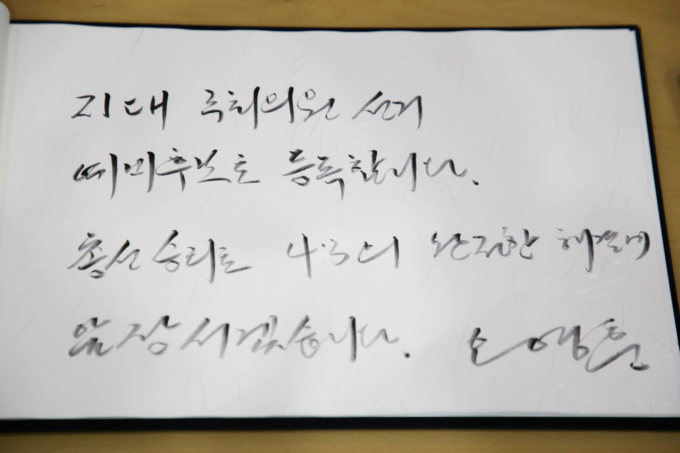 21대 국회의원 선거
예비후보로 등록합니다.
총선 승리로 4·3의 완전한 해결에
앞장 서겠습니다. 오영훈